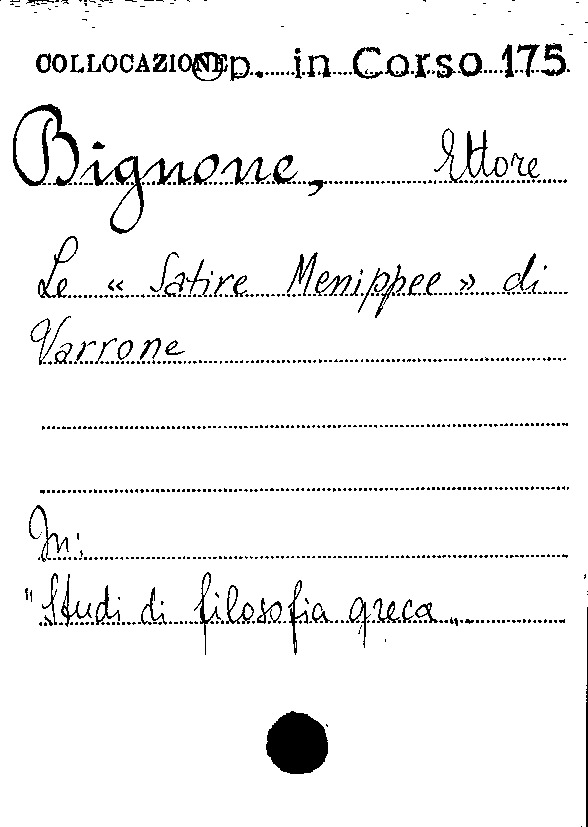 COLLOCAZIONE Op. in Corso 175
Bignone, Ettore
Le « Satire Menippee » di
Varrone
In:
"Studi di filosofia greca„